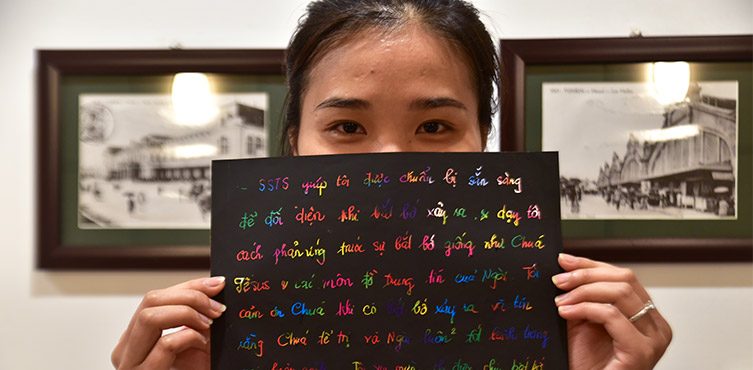 SSTS giúp tôi được chuẩn bị sẵn sàng
để đối diện khi bắt bớ xẩy ra, & dạy tôi
cách phản ứng trước sự bắt bớ giống như Chuá
Jêsus & các môn đồ trung tín cuả Ngài. Tôi
cảm ơn Chuá khi có bắt bớ xảy ra vì tin
rằng Chuá tể trị và Ngài luôn² tốt lành trong